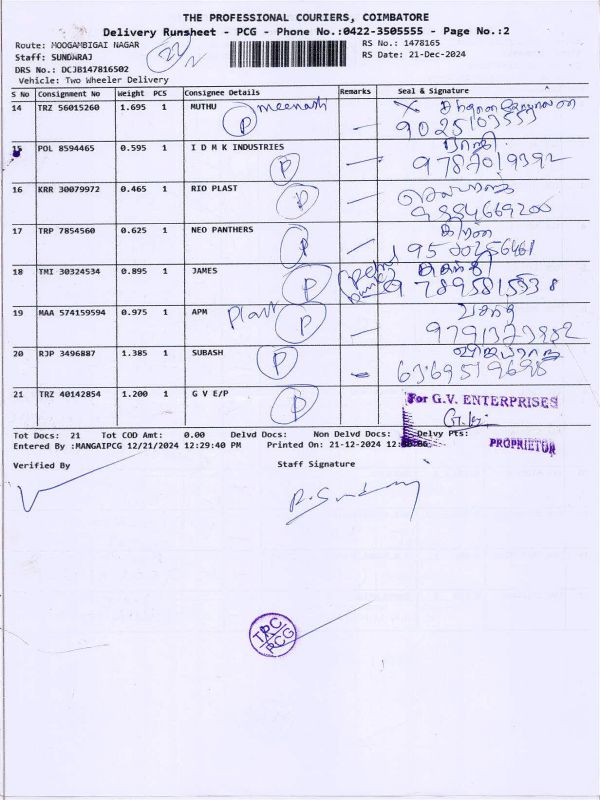 THE PROFESSIONAL COURIERS, COIMBATORE
Delivery Runsheet - PCG - Phone No.:0422-3505555 - Page No.:2
Route: MOOGAMBIGAI NAGAR
RS No.: 1478165
Staff: SUNDARAJ
22
RS Date: 21-Dec-2024
DRS No.: DCJB147816502
Vehicle: Two Wheeler Delivery
S No Consignment No Weight PCS Consignee Details Remarks Seal & Signature
14 TRZ 56015260 1.695 1 MUTHU
P
9025103553
15 POL 8594465 0.595 1 I D M K INDUSTRIES
P
9787019392
16 KRR 30079972 0.465 1 RIO PLAST
P
9884669200
17 TRP 7854560 0.625 1 NEO PANTHERS
P
9500256461
18 TMI 30324534 0.895 1 JAMES
P
97895815538
19 MAA 574159594 0.975 1 APM
P
20 RJP 3496887 1.385 1 SUBASH
P
6369519698
21 TRZ 40142854 1.200 1 G V E/P
P
For G.V. ENTERPRISES
PROPRIETOR
Tot Docs: 21 Tot COD Amt: 0.00 Delvd Docs: Non Delvd Docs: Delvy Pts:
Entered By :MANGAIPCG 12/21/2024 12:29:40 PM Printed On: 21-12-2024
Verified By
Staff Signature
TPC
PCG